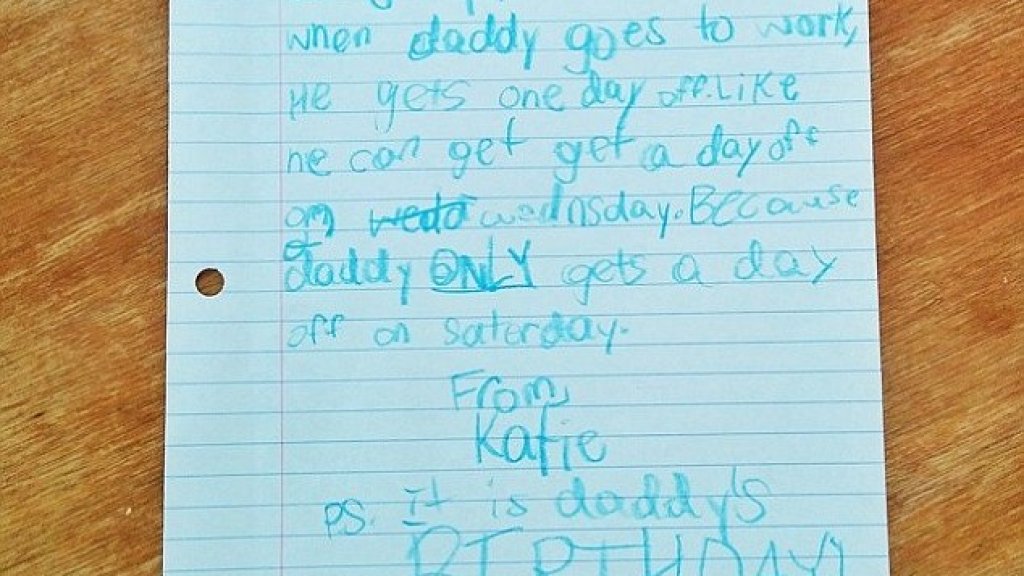 when daddy goes to work,
He gets one day off. Like
he can get get a day off
on wednsday. Because
daddy ONLY gets a day
off on saturday.
From,
Katie
PS. It is daddy's
BIRTHDAY!